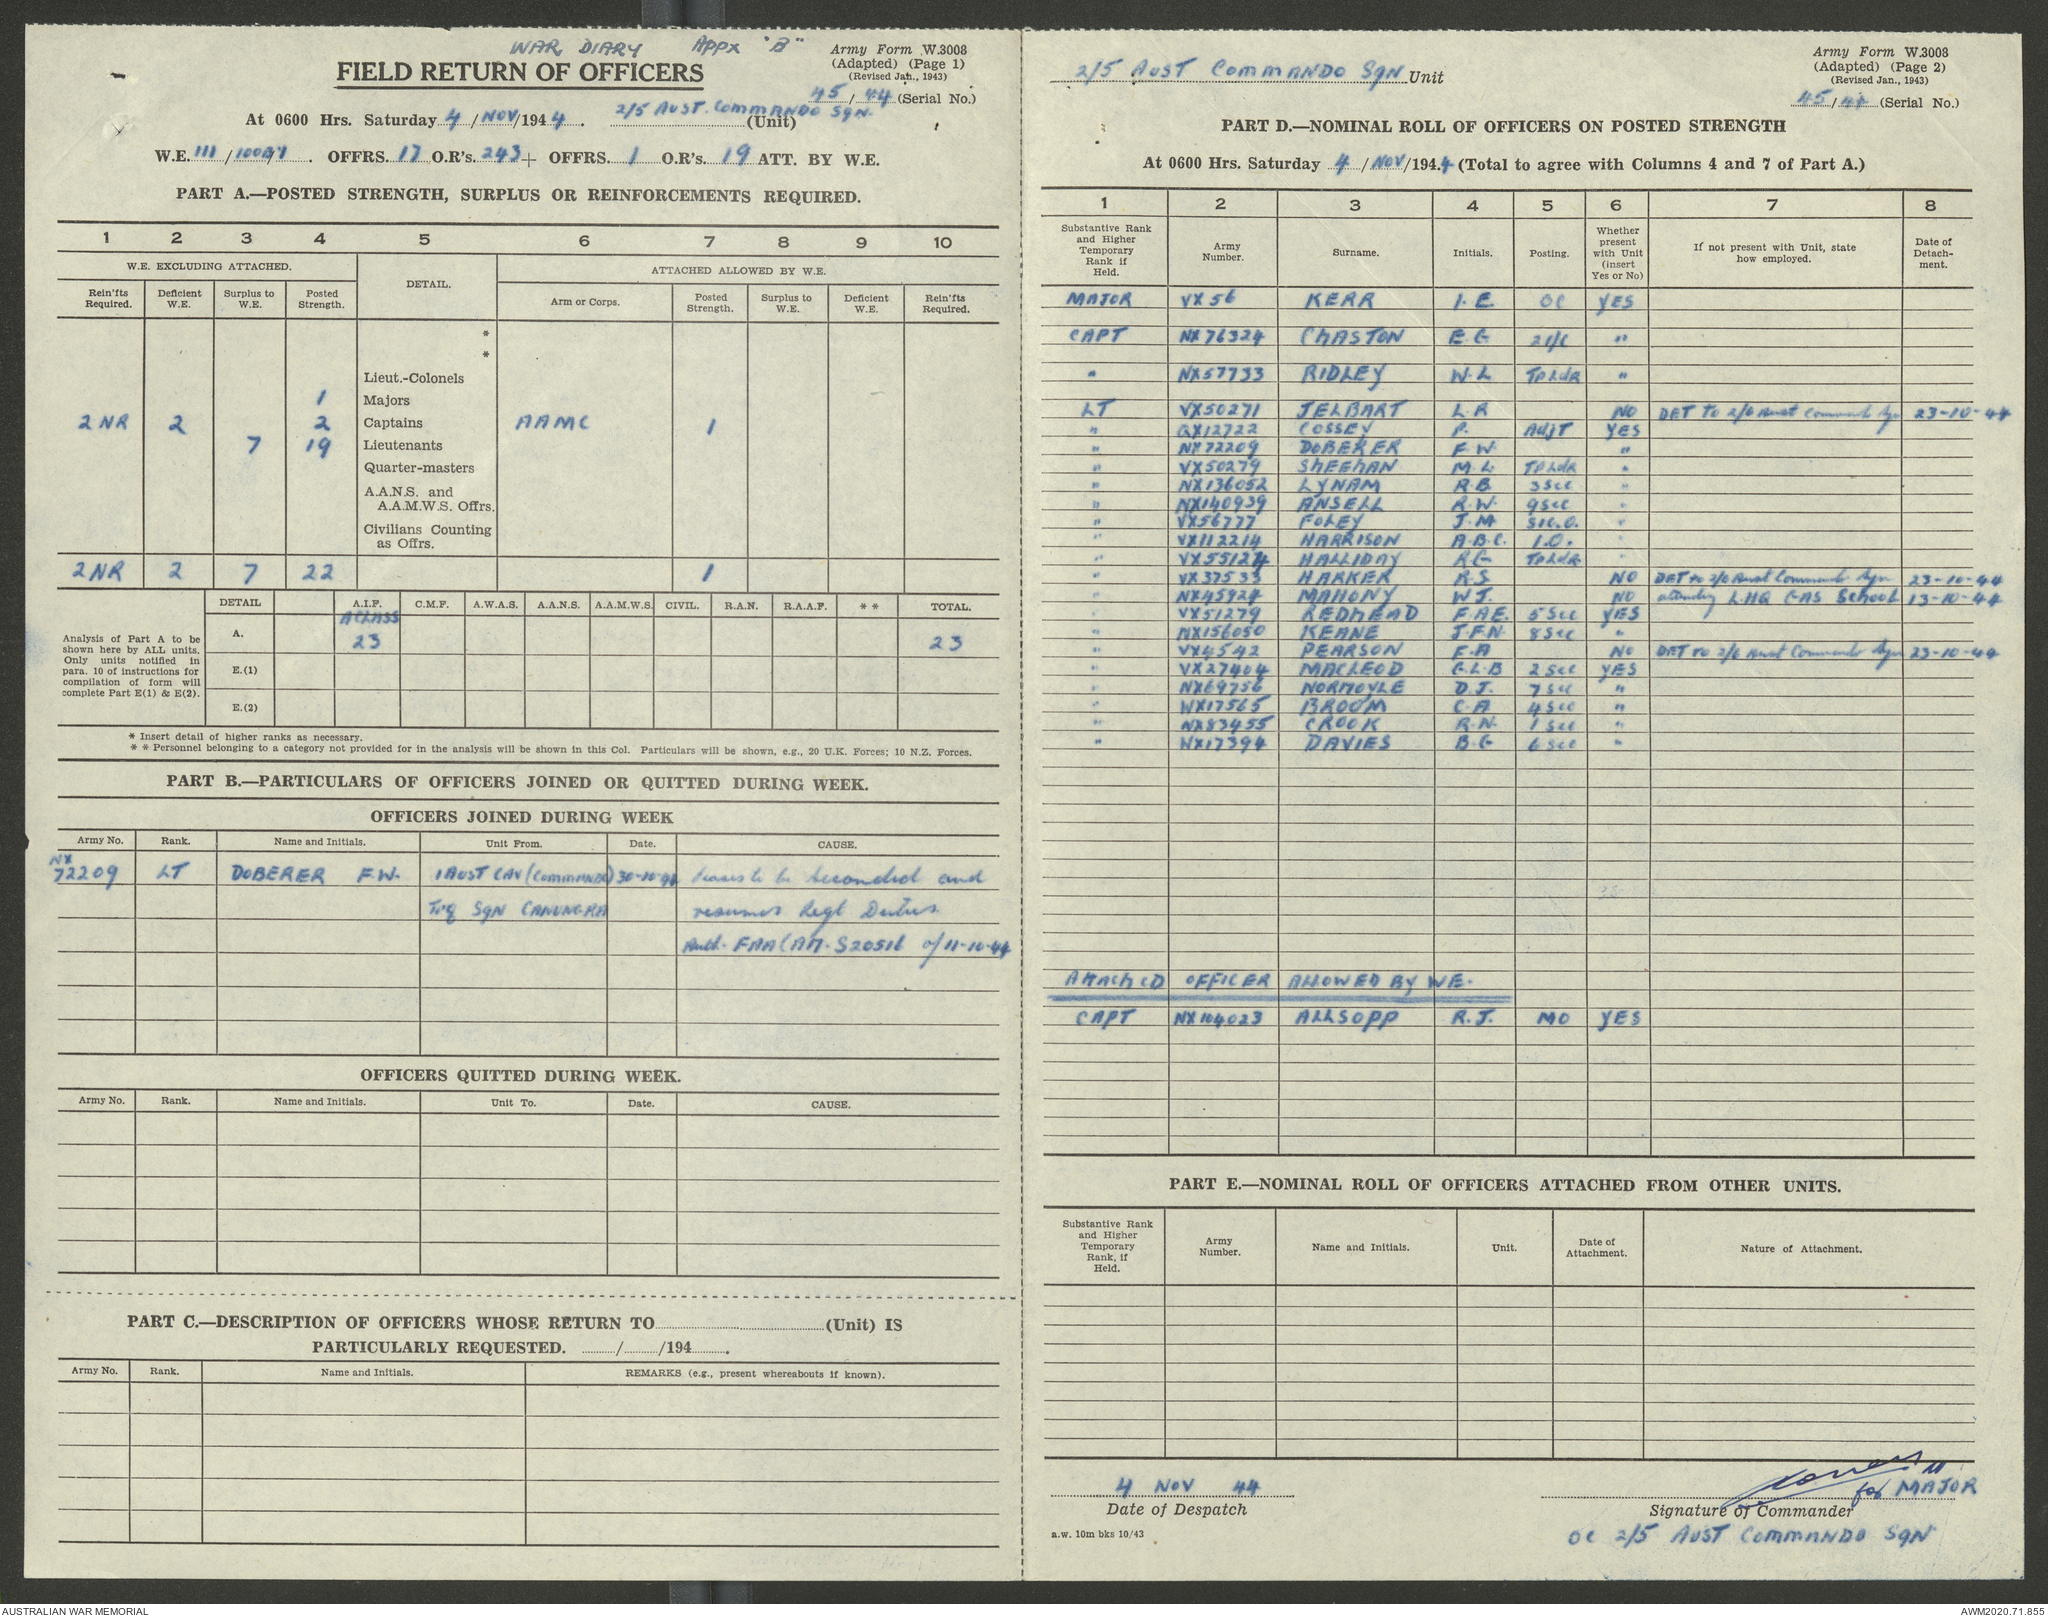 WAR DIARY APPX "B"
Army Form W.3008
(Adapted) (Page 1)
(Revised Jan., 1943)
FIELD RETURN OF OFFICERS
45/44 (Serial No.)
At 0600 Hrs. Saturday 4/NOV/1944. 2/5 AUST. COMMANDO SQN. (Unit)
W.E. 111/ . OFFRS. 17 O.R's. 243 + OFFRS. 1 O.R's. 19 ATT. BY W.E.
PART A.—POSTED STRENGTH, SURPLUS OR REINFORCEMENTS REQUIRED.
1 2 3 4 5 6 7 8 9 10
W.E. EXCLUDING ATTACHED. DETAIL. ATTACHED ALLOWED BY W.E.
Rein'fts Required. Deficient W.E. Surplus to W.E. Posted Strength. Arm or Corps. Posted Strength. Surplus to W.E. Deficient W.E. Rein'fts Required.
*
*
Lieut.-Colonels
1 Majors
2 NR 2 2 Captains AAMC 1
7 19 Lieutenants
Quarter-masters
A.A.N.S. and
A.A.M.W.S. Offrs.
Civilians Counting
as Offrs.
2 NR 2 7 22 1
Analysis of Part A to be
shown here by ALL units.
Only units notified in
para. 10 of instructions for
compilation of form will
complete Part E(1) & E(2).
DETAIL A.I.F. C.M.F. A.W.A.S. A.A.N.S. A.A.M.W.S. CIVIL. R.A.N. R.A.A.F. * * TOTAL.
A CLASS
A. 23 23
E.(1)
E.(2)
* Insert detail of higher ranks as necessary.
* * Personnel belonging to a category not provided for in the analysis will be shown in this Col. Particulars will be shown, e.g., 20 U.K. Forces; 10 N.Z. Forces.
PART B.—PARTICULARS OF OFFICERS JOINED OR QUITTED DURING WEEK.
OFFICERS JOINED DURING WEEK
Army No. Rank. Name and Initials. Unit From. Date. CAUSE.
NX
72209 LT DOBERER F.W. 1 AUST CAV (COMMANDO) 30-10-44 ceases to be seconded and
Trg SQN CANUNGRA resumes Regt Duties
Auth. FAA(AM. S20516 of 11-10-44
OFFICERS QUITTED DURING WEEK.
Army No. Rank. Name and Initials. Unit To. Date. CAUSE.
PART C.—DESCRIPTION OF OFFICERS WHOSE RETURN TO (Unit) IS
PARTICULARLY REQUESTED. / /194 .
Army No. Rank. Name and Initials. REMARKS (e.g., present whereabouts if known).
2/5 AUST COMMANDO SQN Unit
Army Form W.3008
(Adapted) (Page 2)
(Revised Jan., 1943)
45/44 (Serial No.)
PART D.—NOMINAL ROLL OF OFFICERS ON POSTED STRENGTH
At 0600 Hrs. Saturday 4/NOV/1944 (Total to agree with Columns 4 and 7 of Part A.)
1 2 3 4 5 6 7 8
Substantive Rank and Higher Temporary Rank if Held. Army Number. Surname. Initials. Posting. Whether present with Unit (insert Yes or No) If not present with Unit, state how employed. Date of Detach-ment.
MAJOR VX56 KERR I.E. OC YES
CAPT NX76324 CHASTON E.G 2i/c "
" NX57733 RIDLEY W.L TpLdR "
LT VX50271 JELBART L.R NO DET TO 2/6 Aust Commando Sqn 23-10-44
" QX12722 COSSEY P. ADJT YES
" NX72209 DOBERER F.W. "
" VX50279 SHEEHAN M.L TpLdR "
" NX136052 LYNAM R.B. 3 Sec "
" NX140939 ANSELL R.W. 9 Sec "
" VX56777 FOLEY J.M SIG.O. "
" VX112214 HARRISON A.B.C. I.O. "
" VX55127 HALLIDAY R.G TpLdR "
" VX37533 HARKER R.S NO DET to 2/6 Aust Commando Sqn 23-10-44
" NX45924 MAHONY W.J. NO attending LHQ GAS School 13-10-44
" VX51279 REDMEAD F.A.E. 5 Sec YES
" NX156050 KEANE J.F.N. 8 Sec "
" VX4542 PEARSON F.A NO DET to 2/6 Aust Commando Sqn 23-10-44
" VX27404 MACLEOD G.L.B 2 Sec YES
" NX69756 NORMOYLE D.J. 7 Sec "
" WX17565 BROOM C.A 4 Sec "
" NX83455 CROOK R.N. 1 Sec "
" NX17394 DAVIES B.G 6 Sec "
ATTACHED OFFICER ALLOWED BY WE.
CAPT NX104023 ALLSOPP R.J. MO YES
PART E.—NOMINAL ROLL OF OFFICERS ATTACHED FROM OTHER UNITS.
Substantive Rank and Higher Temporary Rank, if Held. Army Number. Name and Initials. Unit. Date of Attachment. Nature of Attachment.
4 NOV 44
Date of Despatch
for MAJOR
Signature of Commander
a.w. 10m bks 10/43
OC 2/5 AUST COMMANDO SQN
AUSTRALIAN WAR MEMORIAL
AWM2020.71.855